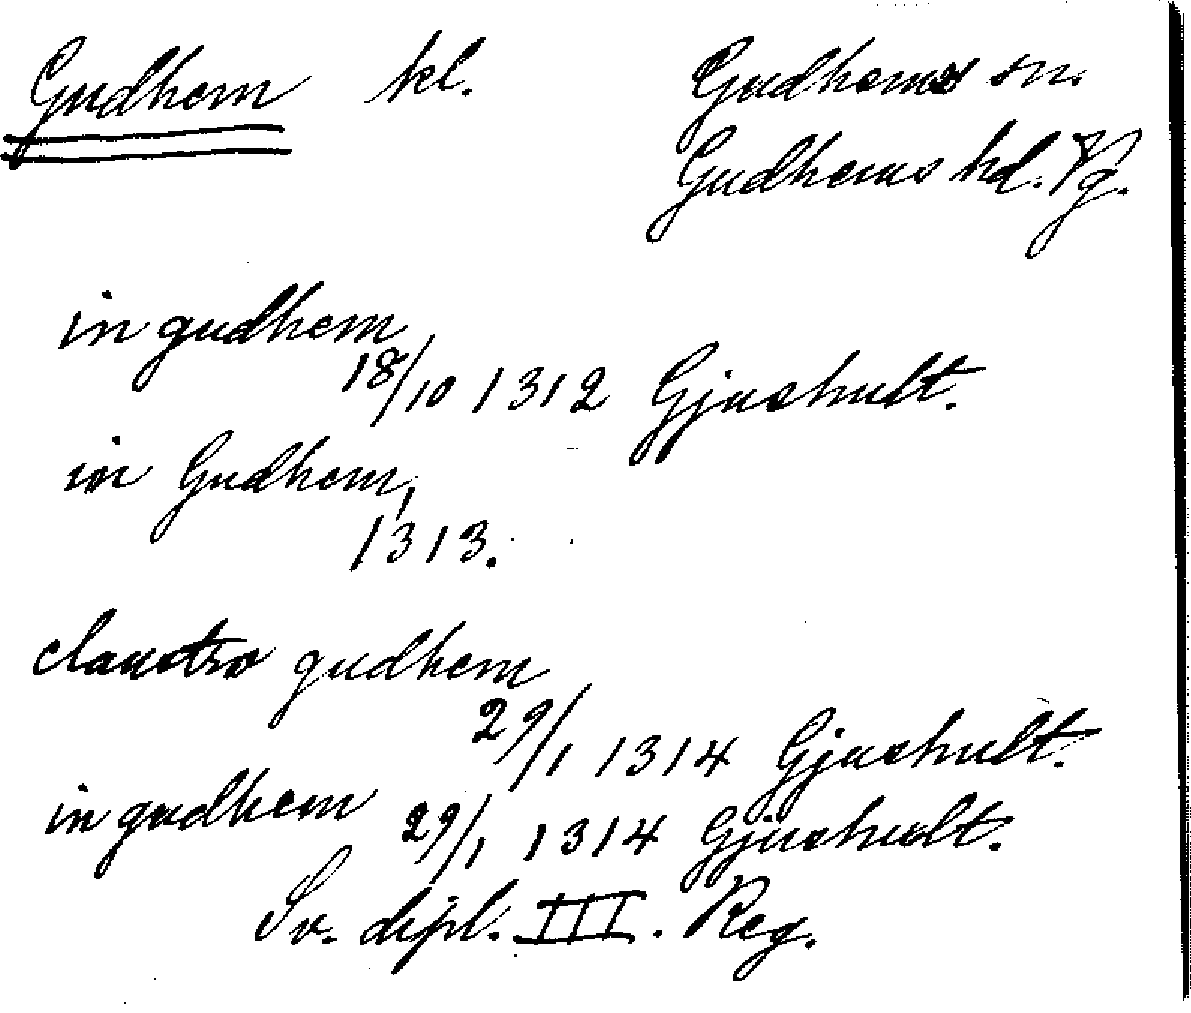 Gudhem kl. Gudhems sn.
Gudhems hd. Vg.
in gudhem
18/10 1312 Gjushult.
in Gudhem,
1313.
claustro gudhem
29/1 1314 Gjushult.
in gudhem 29/1 1314 Gjushult.
Sv. dipl. III. Reg.